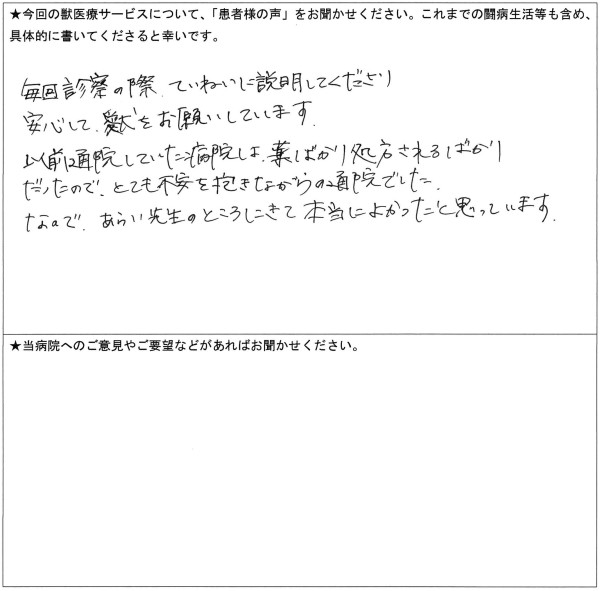 ★今回の獣医療サービスについて、「患者様の声」をお聞かせください。これまでの闘病生活等も含め、
具体的に書いてくださると幸いです。
毎回診察の際、ていねいに説明してくださり
安心して、愛犬をお願いしています。
以前通院していた病院は、薬ばかり処方されるばかり
だったので、とても不安を抱きながらの通院でした。
なので、あらい先生のところにきて本当によかったと思っています。
★当病院へのご意見やご要望などがあればお聞かせください。